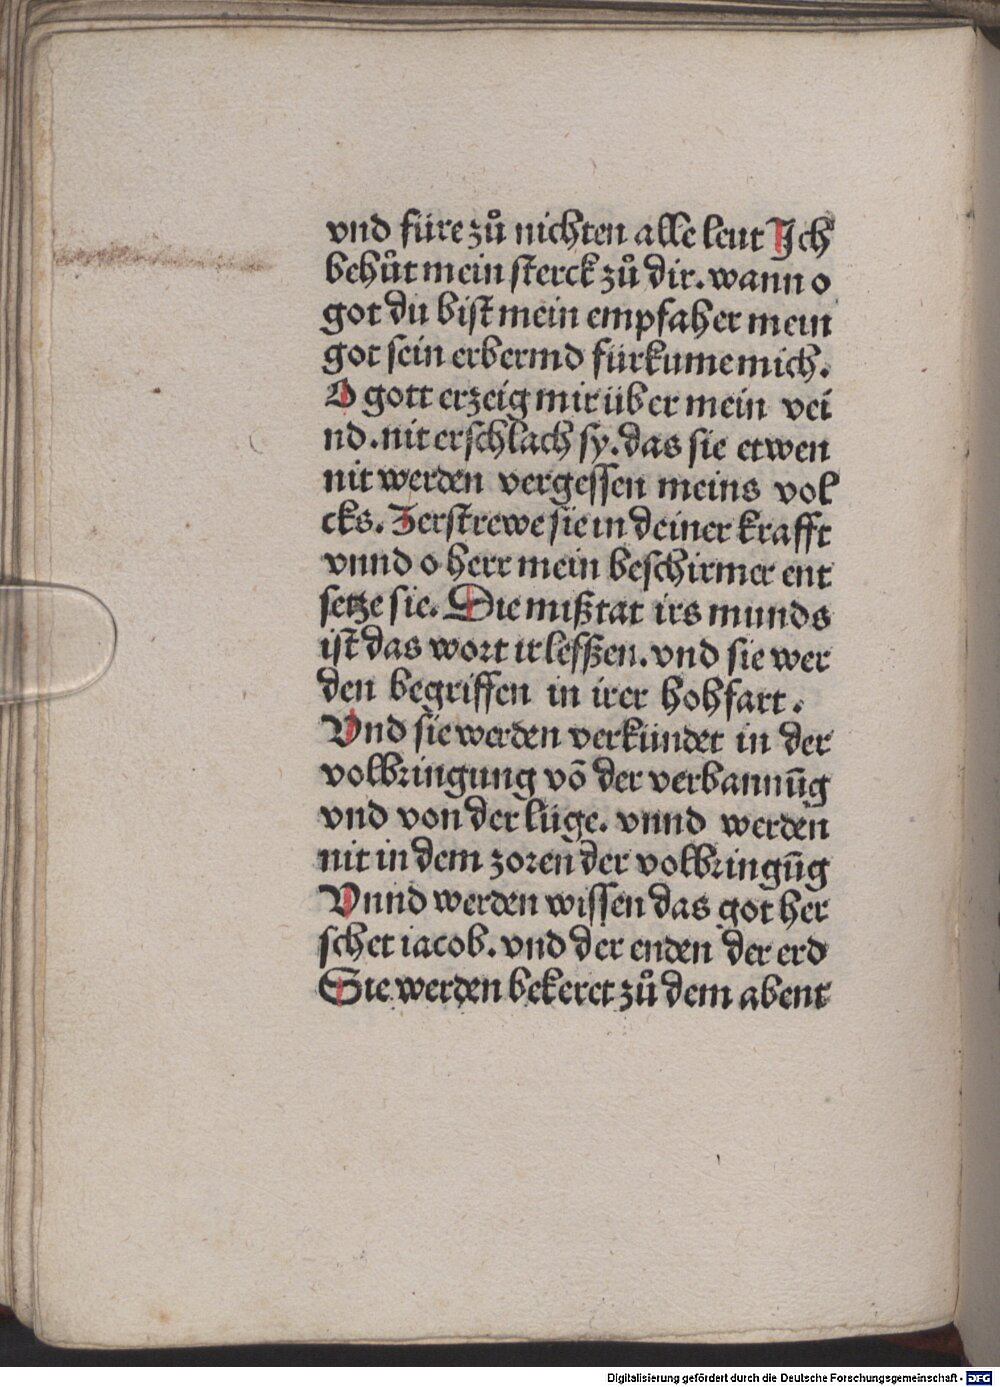 vnd füre zů nichten alle leut Jch
behůt mein sterck zů dir. wann o
got du bist mein empfaher mein
got sein erbermd fürkume mich.
O gott erzeig mir über mein vei
nd. nit erschlach sy. das sie etwen
nit werden vergessen meins vol
cks. Zerstrewe sie in deiner krafft
vnnd o herr mein beschirmer ent
setze sie. Die mißtat irs munds
ist das wort ir lefßen. vnd sie wer
den begriffen in irer hohfart.
Vnd sie werden verkündet in der
volbringung võ der verbannũg
vnd von der lüge. vnnd werden
nit in dem zoren der volbringũg
Vnnd werden wissen das got her
schet iacob. vnd der enden der erd
Sie werden bekeret zů dem abent
Digitalisierung gefördert durch die Deutsche Forschungsgemeinschaft - DFG